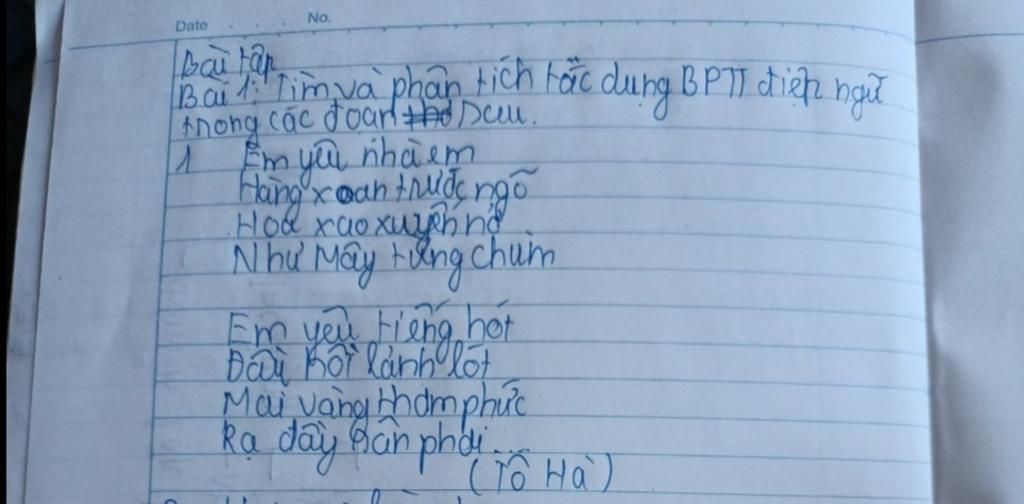 Date No.
Bài tập
Bài 1: Tìm và phân tích tác dụng BPTT điệp ngữ
trong các đoạn sau.
1 Em yêu nhà em
Hàng xoan trước ngõ
Hoa xao xuyến nở
Như Mây từng chùm
Em yêu tiếng hót
Đầu hồi lảnh lót
Mái vàng thơm phức
Rạ đầy sân phơi...
(Tô Hà)